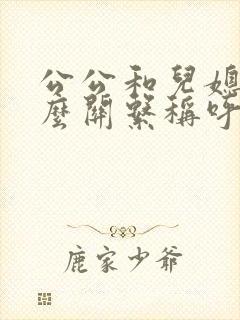 公公和兒媳
麼關繫稱呼
鹿家少爺